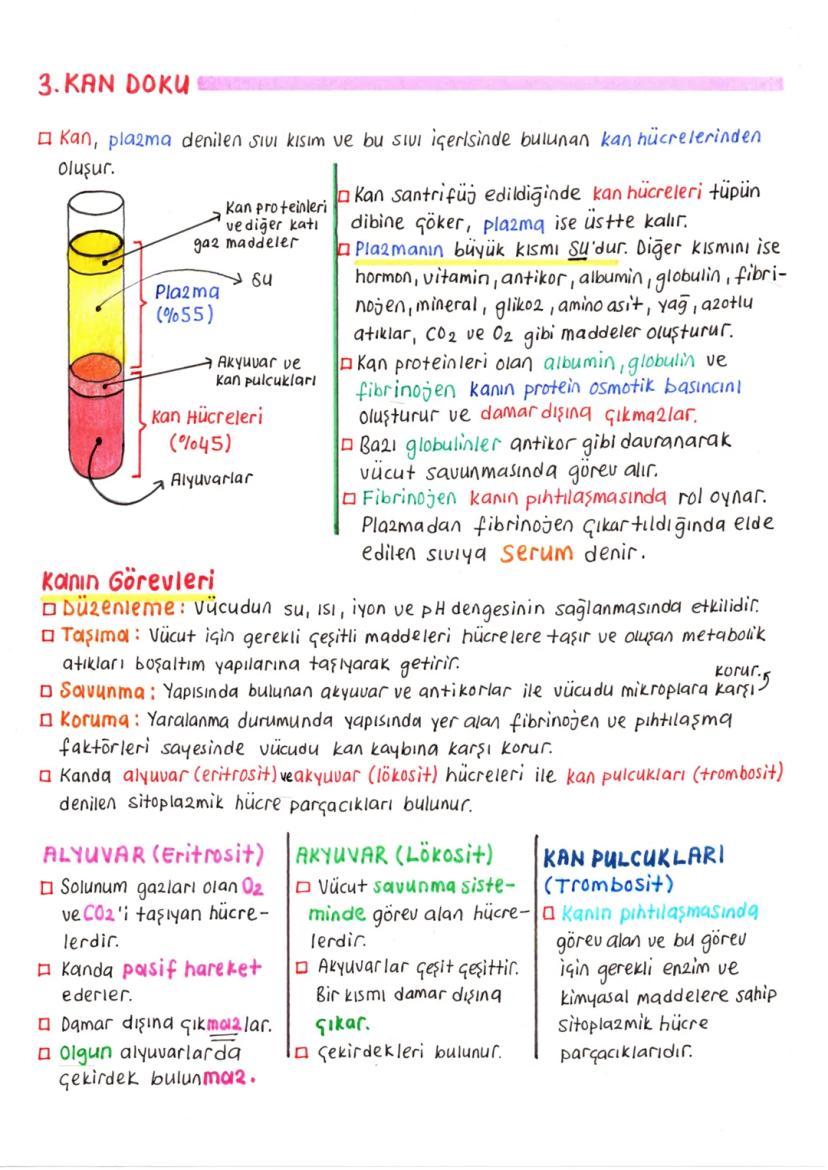 3. KAN DOKU
Kan, plazma denilen sıvı kısım ve bu sıvı içerisinde bulunan kan hücrelerinden
oluşur.
Kan proteinleri
ve diğer katı
gaz maddeler
Su
Plazma
(%55)
Akyuvar ve
kan pulcukları
Kan Hücreleri
(%45)
Alyuvarlar
Kan santrifüj edildiğinde kan hücreleri tüpün
dibine çöker, plazma ise üstte kalır.
Plazmanın büyük kısmı su'dur. Diğer kısmını ise
hormon, vitamin, antikor, albumin, globulin, fibri-
nojen, mineral, glikoz, amino asit, yağ, azotlu
atıklar, CO2 ve O2 gibi maddeler oluşturur.
Kan proteinleri olan albumin, globulin ve
fibrinojen kanın protein osmotik basıncını
oluşturur ve damar dışına çıkmazlar.
Bazı globulinler antikor gibi davranarak
vücut savunmasında görev alır.
Fibrinojen kanın pıhtılaşmasında rol oynar.
Plazmadan fibrinojen çıkartıldığında elde
edilen sıvıya serum denir.
Kanın Görevleri
Düzenleme: Vücudun su, ısı, iyon ve pH dengesinin sağlanmasında etkilidir.
Taşıma: Vücut için gerekli çeşitli maddeleri hücrelere taşır ve oluşan metabolik
atıkları boşaltım yapılarına taşıyarak getirir.
Savunma: Yapısında bulunan akyuvar ve antikorlar ile vücudu mikroplara karşı korur.
Koruma: Yaralanma durumunda yapısında yer alan fibrinojen ve pıhtılaşma
faktörleri sayesinde vücudu kan kaybına karşı korur.
Kanda alyuvar (eritrosit) ve akyuvar (lökosit) hücreleri ile kan pulcukları (trombosit)
denilen sitoplazmik hücre parçacıkları bulunur.
ALYUVAR (Eritrosit)
Solunum gazları olan O2
ve CO2'i taşıyan hücre-
lerdir.
Kanda pasif hareket
ederler.
Damar dışına çıkmazlar.
Olgun alyuvarlarda
çekirdek bulunmaz.
AKYUVAR (Lökosit)
Vücut savunma siste-
minde görev alan hücre-
lerdir.
Akyuvarlar çeşit çeşittir.
Bir kısmı damar dışına
çıkar.
Çekirdekleri bulunur.
KAN PULCUKLARI
(Trombosit)
Kanın pıhtılaşmasında
görev alan ve bu görev
için gerekli enzim ve
kimyasal maddelere sahip
sitoplazmik hücre
parçacıklarıdır.